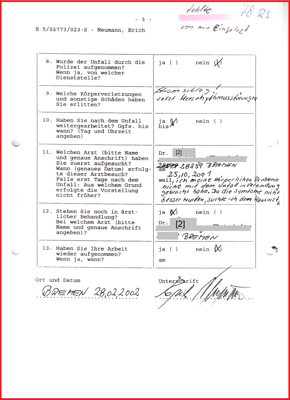 - 3 -
E 5/02773/023-S - Neumann, Erich
8. Wurde der Unfall durch die
Polizei aufgenommen?
Wenn ja, von welcher
Dienststelle?
ja ( ) nein (X)
9. Welche Körperverletzungen
und sonstige Schäden haben
Sie erlitten?
Stromschlag!
Herzrhythmusstörungen
10. Haben Sie nach dem Unfall
weitergearbeitet? Ggfs. bis
wann? (Tag und Uhrzeit
angeben)
ja (X) nein ( )
bis
11. Welchen Arzt (bitte Name
und genaue Anschrift) haben
Sie zuerst aufgesucht?
Wann (genaues Datum) erfolg-
te dieser Arztbesuch?
Falls erst Tage nach dem
Unfall: Aus welchem Grund
erfolgte die Vorstellung
nicht früher?
Dr. [2]
BREMEN
am 25.10.2001
weil, ich meine körperlichen Probleme
nicht mit dem Unfall in Verbindung
gebracht habe. Da die Symptome nicht
besser wurden, suchte ich dem Hausarzt
12. Stehen Sie noch in ärzt-
licher Behandlung?
Bei welchem Arzt (bitte
Name und genaue Anschrift
angeben)?
ja (X) nein ( )
Dr. [2]
BREMEN
13. Haben Sie Ihre Arbeit
wieder aufgenommen?
Wenn ja, wann?
ja ( ) nein (X)
am
Ort und Datum
Unterschrift
BREMEN 28.02.2002